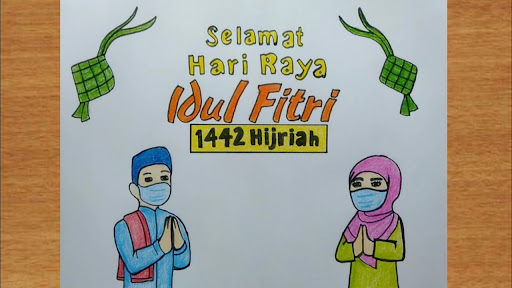 Selamat
Hari Raya
Idul Fitri
1442 Hijriah